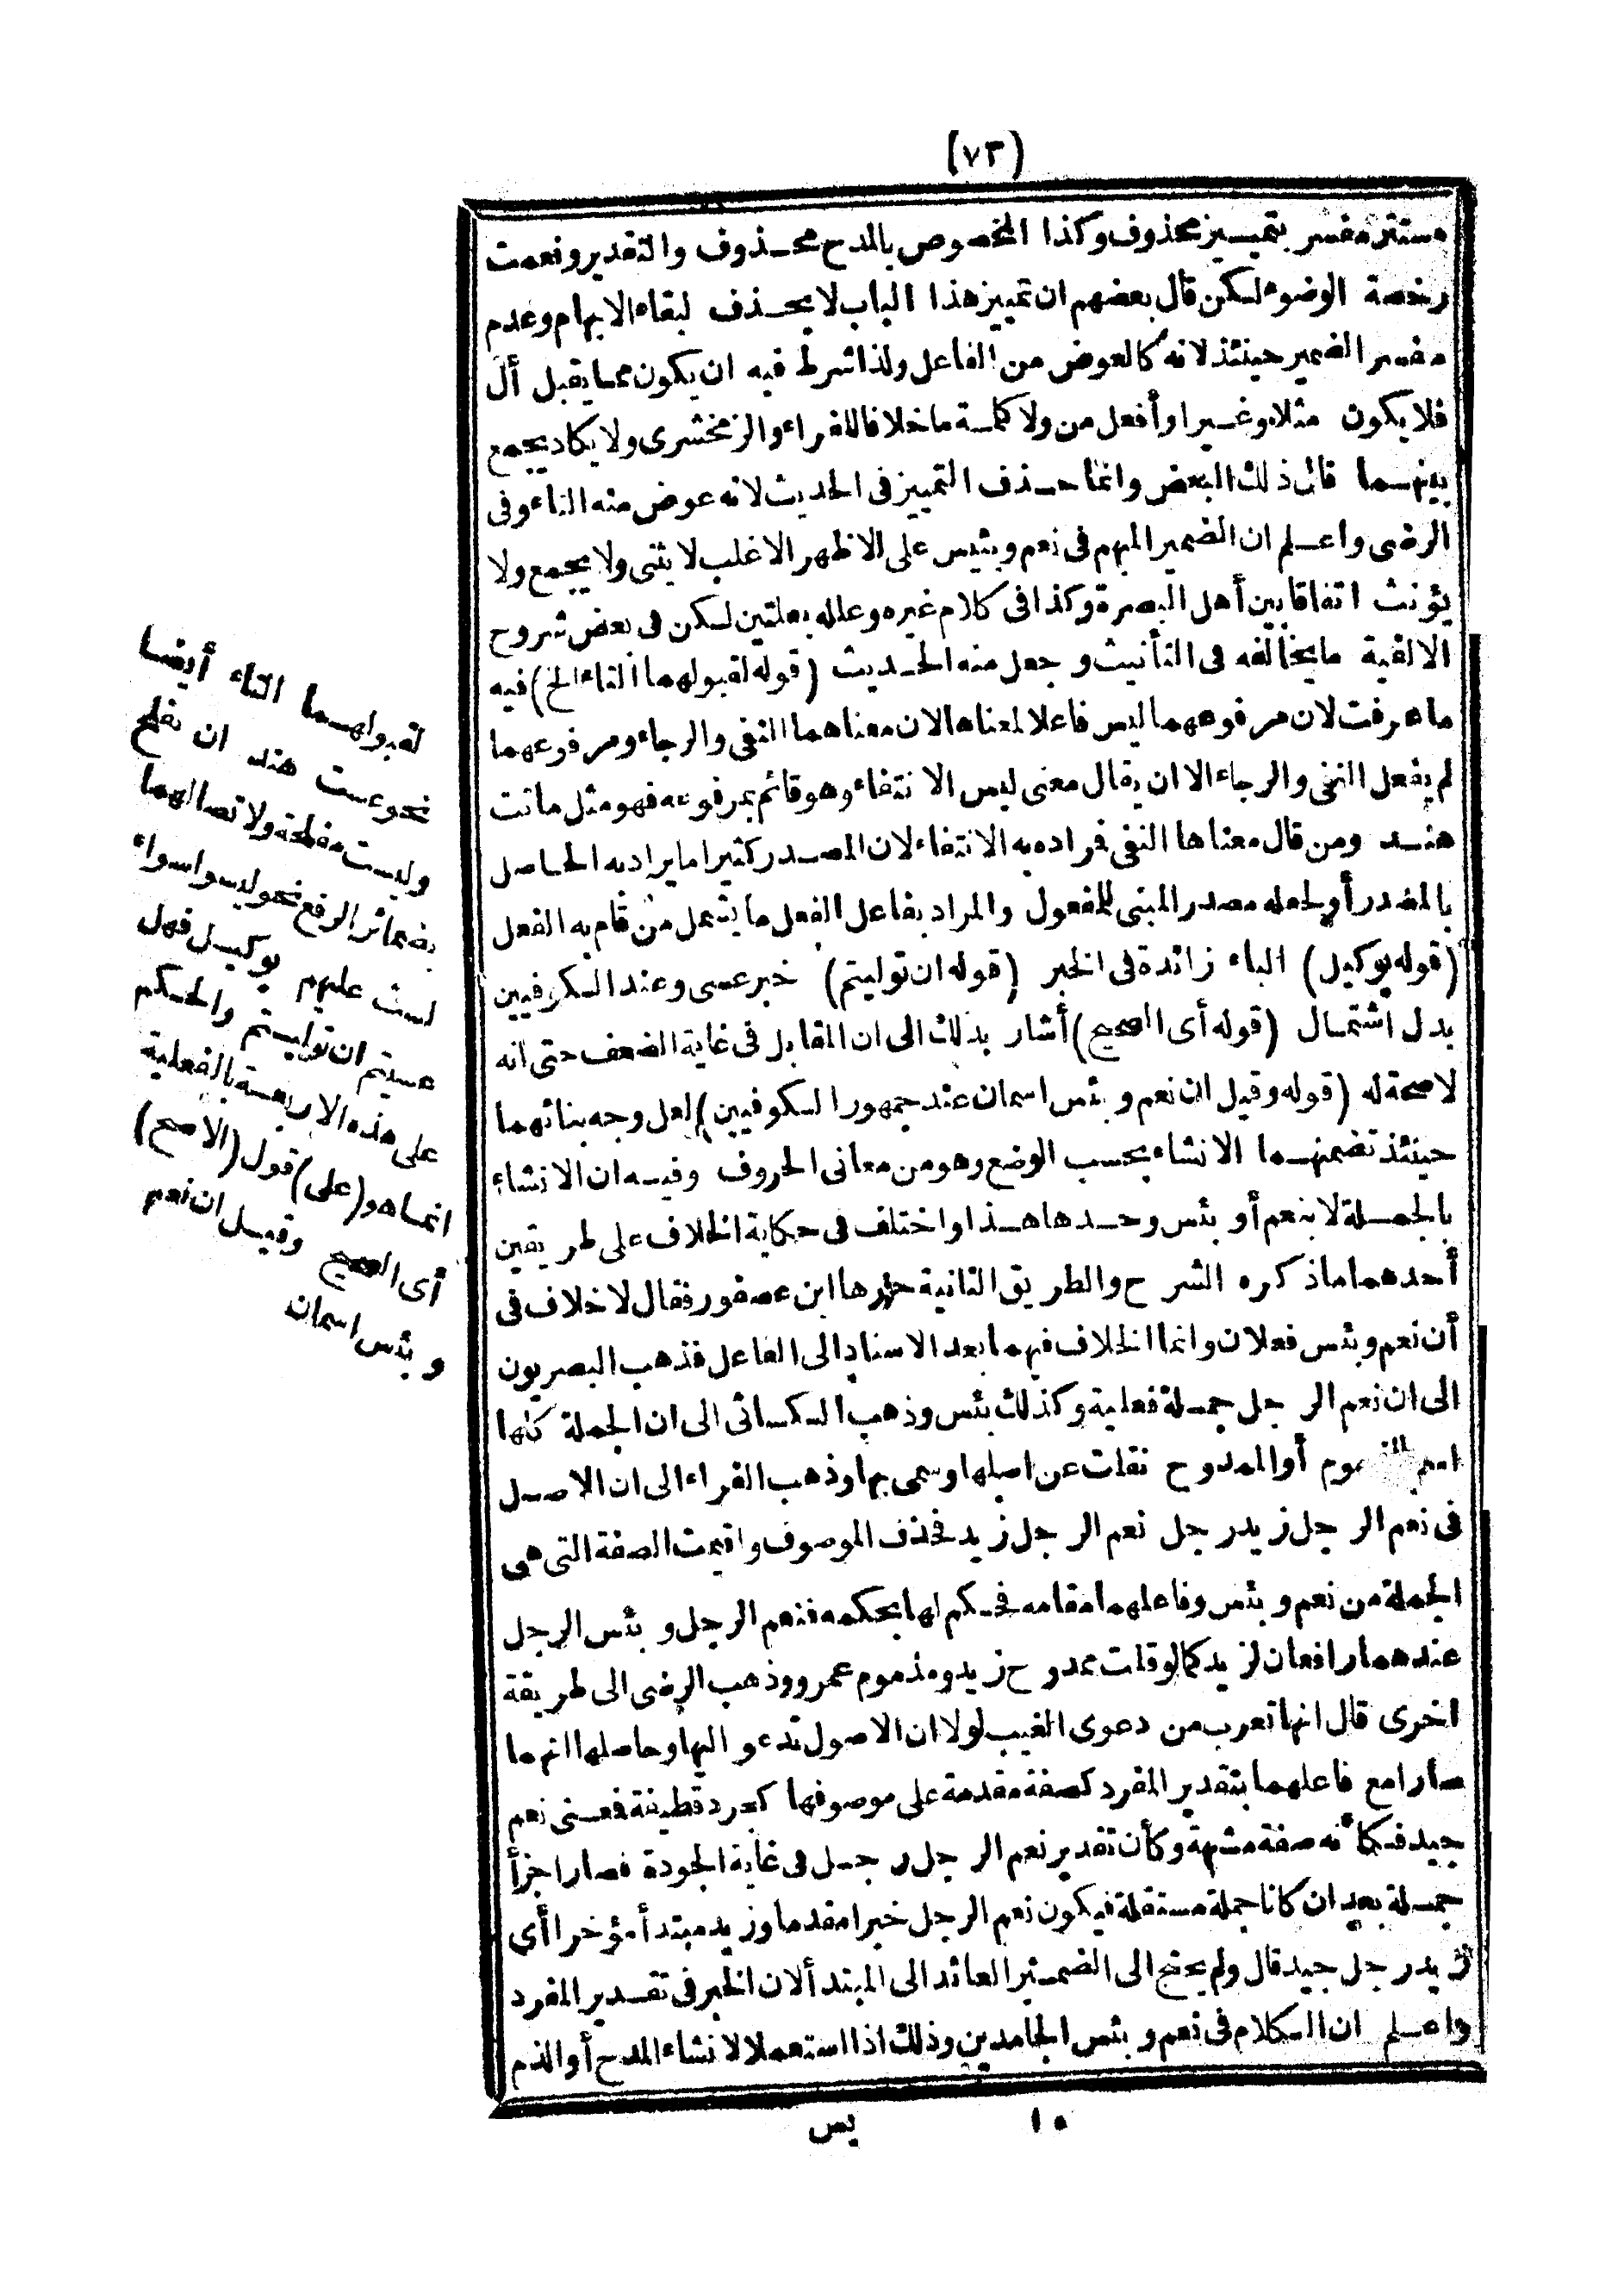 (٧٣)
مستتر مفسر بتمييز محذوف وكذا المخصوص بالمدح محذوف والتقدير ونعمت
رخصة الوضوء لكن قال بعضهم ان تمييز هذا الباب لا يحذف لبقاء الابهام وعدم
مفسر الضمير حينئذ لانه كالعوض من الفاعل ولذا شرط فيه ان يكون مما يقبل أل
فلا يكون مثلا وغيرا وأفعل من ولا كلمة ما خلافا للفراء والزمخشرى ولا يكاد يجمع
بينهما قال ذلك البعض وانما حذف التمييز فى الحديث لانه عوض منه التاء وفى
الرضى واعلم ان الضمير المبهم فى نعم وبئس على الاظهر الاغلب لا يثنى ولا يجمع ولا
يؤنث اتفاقا بين أهل البصرة وكذا فى كلام غيره وعلله بعلتين لكن فى بعض شروح
الالفية ما يخالفه فى التأنيث وجعل منه الحديث (قوله لقبولهما التاء الخ) فيه
ما عرفت لان مرفوعهما ليس فاعلا لمعناها لان معناهما النفى والرجاء ومرفوعهما
لم يفعل النفى والرجاء الا ان يقال معنى ليس الانتفاء وهو قائم بمرفوعه فهو مثل ماتت
هند ومن قال معناها النفى فراده به الانتفاء لان المصدر كثيرا ما يراد به الحاصل
بالمصدر أو لجعله مصدر المبنى للمفعول والمراد بفاعل الفعل ما يشمل من قام به الفعل
(قوله بوكيل) الباء زائدة فى الخبر (قوله ان توليتم) خبر عسى وعند الكوفيين
بدل اشتمال (قوله أى الصحيح) أشار بذلك الى ان المقابل فى غاية الضعف حتى انه
لا صحة له (قوله وقيل ان نعم وبئس اسمان عند جمهور الكوفيين) لعل وجه بنائهما
حينئذ تضمنهما الانشاء بحسب الوضع وهو من معانى الحروف وفيه ان الانشاء
بالجملة لا بنعم أو بئس وحدها هذا واختلف فى حكاية الخلاف على طريقين
أحدهما ما ذكره الشرح والطريق الثانية حررها ابن عصفور فقال لا خلاف فى
أن نعم وبئس فعلان وانما الخلاف فيهما بعد الاسناد الى الفاعل فذهب البصريون
الى ان نعم الرجل جملة فعلية وكذلك بئس وذهب الكسائى الى ان الجملة كلها
اسم المذموم أو الممدوح نقلت عن اصلها وسمى بها وذهب الفراء الى ان الاصل
فى نعم الرجل زيد رجل نعم الرجل زيد فحذف الموصوف واقيمت الصفة التى هى
الجملة من نعم وبئس وفاعلهما مقامه فحكم لها بحكمه فنعم الرجل وبئس الرجل
عندهما رافعان لزيد كما لو قلت ممدوح زيد ومذموم عمرو وذهب الرضى الى طريقة
اخرى قال انها تعرب من دعوى الغيب لولا ان الاصول تدعو اليها وحاصلها انهما
صارا مع فاعلهما بتقدير المفرد كصفة مقدمة على موصوفها كجرد قطيفة فعنى نعم
جيد فكأنه صفة مشبهة وكأن تقدير نعم الرجل رجل فى غاية الجودة فصارا جزأ
جملة بعد ان كانا جملة مستقلة فيكون نعم الرجل خبرا مقدما وزيد مبتدأ مؤخرا أى
زيد رجل جيد قال ولم يحتج الى الضمير العائد الى المبتدأ لان الخبر فى تقدير المفرد
واعلم ان الكلام فى نعم وبئس الجامدين وذلك اذا استعملا لانشاء المدح أو الذم
١٠ يس
لقبولهما التاء أيضا
نحو عست هند ان تفلح
وليست مفلحة ولاتصالهما
بضمائر الرفع نحو ليسوا سواء
لست عليهم بوكيل فهل
عسيتم ان توليتم والحكم
على هذه الاربعة بالفعلية
انما هو (على) قول (الاصح)
أى الصحيح وقيل ان نعم
وبئس اسمان